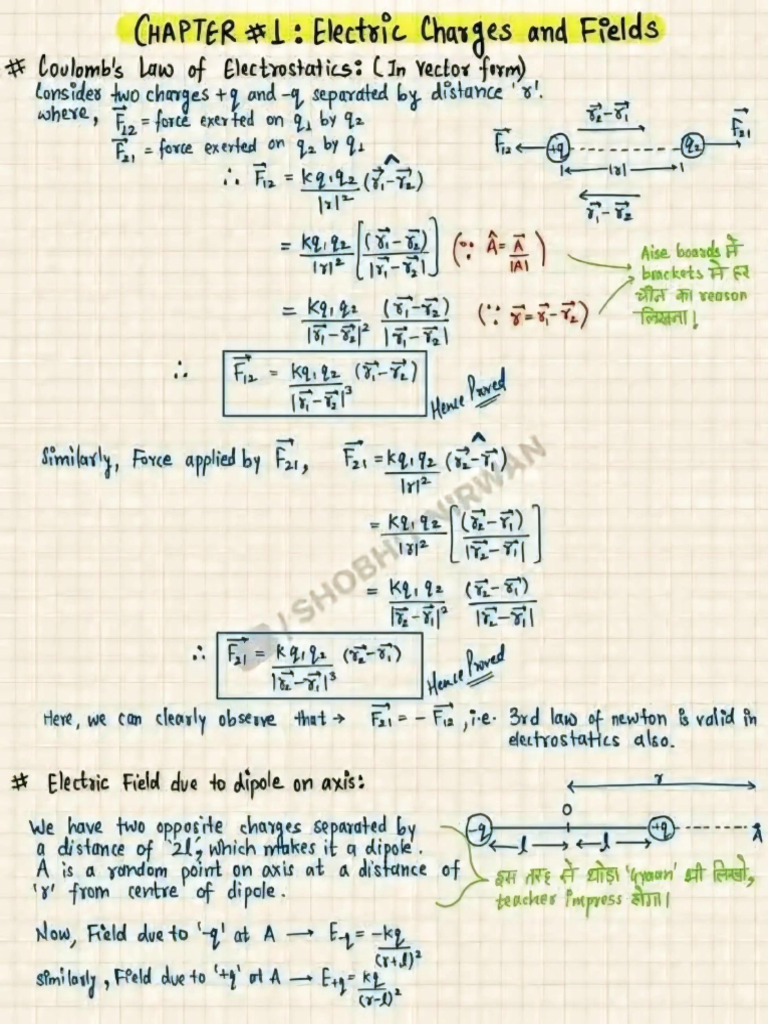 CHAPTER #1: Electric Charges and Fields
# Coulomb's Law of Electrostatics: (In vector form)
Consider two charges +q and -q separated by distance 'r'.
where, F⃗₁₂ = force exerted on q₁ by q₂
F⃗₂₁ = force exerted on q₂ by q₁
r⃗₂-r⃗₁
F⃗₁₂ +q q₂ F⃗₂₁
|r|
r⃗₁-r⃗₂
∴ F⃗₁₂ = kq₁q₂/|r|² (r⃗₁-r⃗₂)^
= kq₁q₂/|r|² [(r⃗₁-r⃗₂)/|r⃗₁-r⃗₂|] (∵ Â = A⃗/|A|)
= kq₁q₂/|r⃗₁-r⃗₂|² (r⃗₁-r⃗₂)/|r⃗₁-r⃗₂| (∵ r⃗=r⃗₁-r⃗₂)
Aise boards में
brackets में हर
चीज का reason
लिखना।
∴ F⃗₁₂ = kq₁q₂/|r⃗₁-r⃗₂|³ (r⃗₁-r⃗₂)
Hence Proved
Similarly, Force applied by F⃗₂₁, F⃗₂₁ = kq₁q₂/|r|² (r⃗₂-r⃗₁)^
= kq₁q₂/|r|² [(r⃗₂-r⃗₁)/|r⃗₂-r⃗₁|]
= kq₁q₂/|r⃗₂-r⃗₁|² (r⃗₂-r⃗₁)/|r⃗₂-r⃗₁|
∴ F⃗₂₁ = kq₁q₂/|r⃗₂-r⃗₁|³ (r⃗₂-r⃗₁)
Hence Proved
/SHOBHIT NIRWAN
Here, we can clearly observe that → F⃗₂₁ = - F⃗₁₂, i.e. 3rd law of newton is valid in
electrostatics also.
# Electric Field due to dipole on axis:
r
O
-q +q A
l l
We have two opposite charges separated by
a distance of '2l', which makes it a dipole.
A is a random point on axis at a distance of
'r' from centre of dipole.
इस तरह से थोड़ा 'Gyaan' भी लिखो,
teacher impress होगा।
Now, Field due to '-q' at A → E-q = -kq/(r+l)²
similarly, Field due to '+q' at A → E+q = kq/(r-l)²